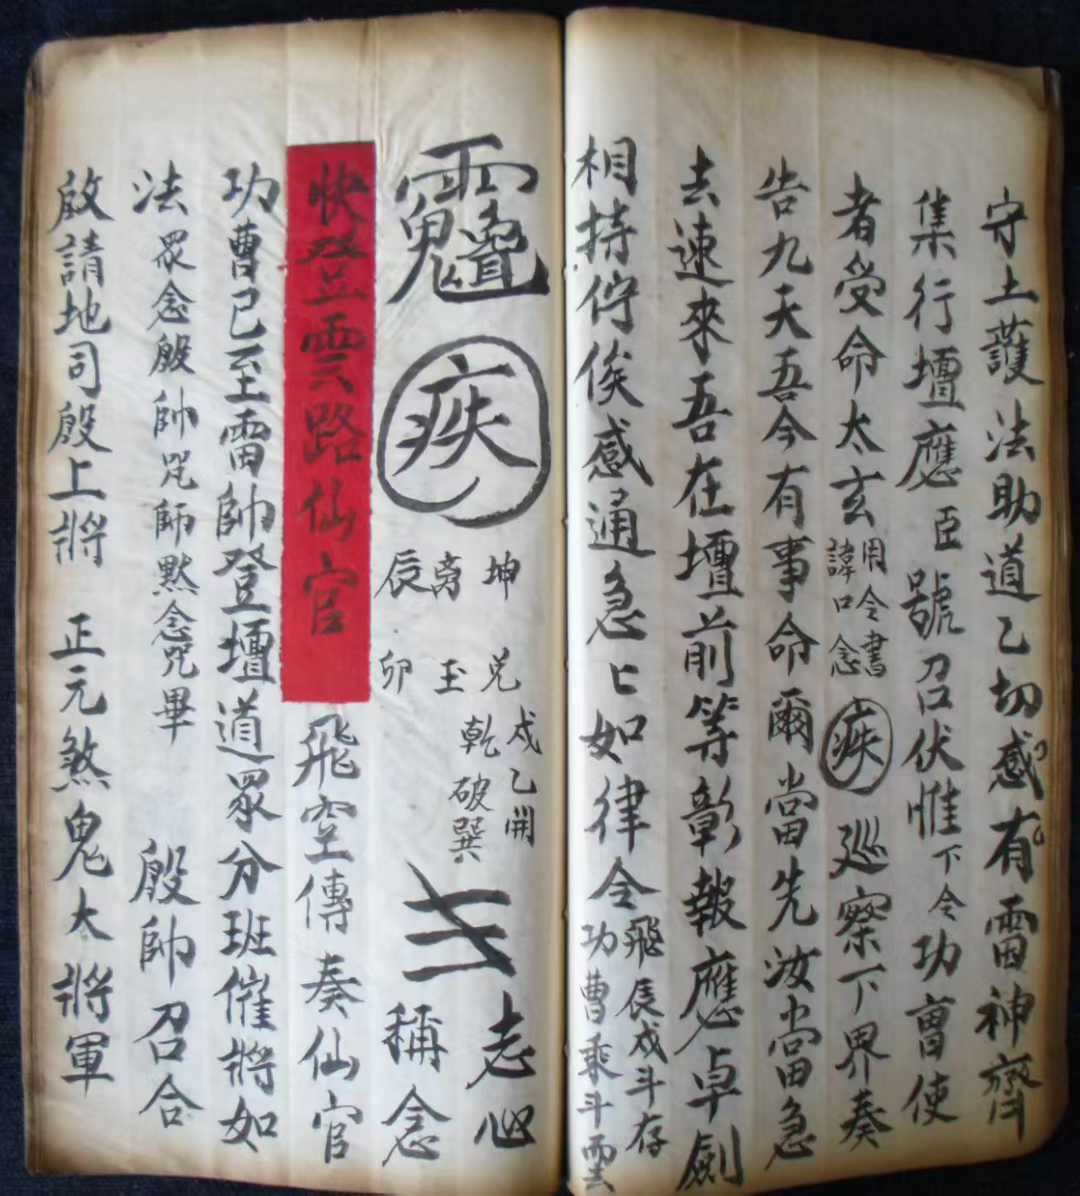 守土護法助道乙切感有雷神齊
集行壇應臣號召伏惟下令功曹使
者受命太玄用令書諱口念疾巡察下界奏
告九天吾今有事命爾當先汝當急
去速來吾在壇前等彰報應卓劍
相持佇俟感通急匕如律令飛辰戌斗存功曹乘斗雲
疾
坤离辰
兌玉卯
戌乙開
乾破巽
志心
稱念
快登雲路仙官飛空傳奏仙官
功曹已至雷帥登壇道眾分班催將如
法眾念殷帥咒師默念咒畢 殷帥召合
啟請地司殷上將 正元煞鬼大將軍